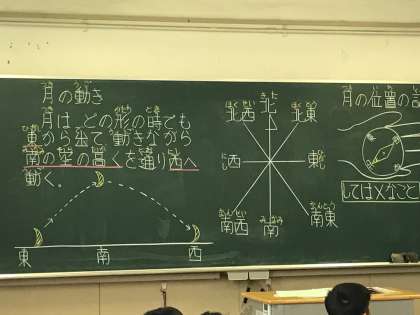 月の動き
月は、どの形の時でも
東から出て動きながら
南の空の高くを通り西へ
動く。
東 南 西
北西 北 北東
西 東
南西 南 南東
月の位置の
してはXなこと